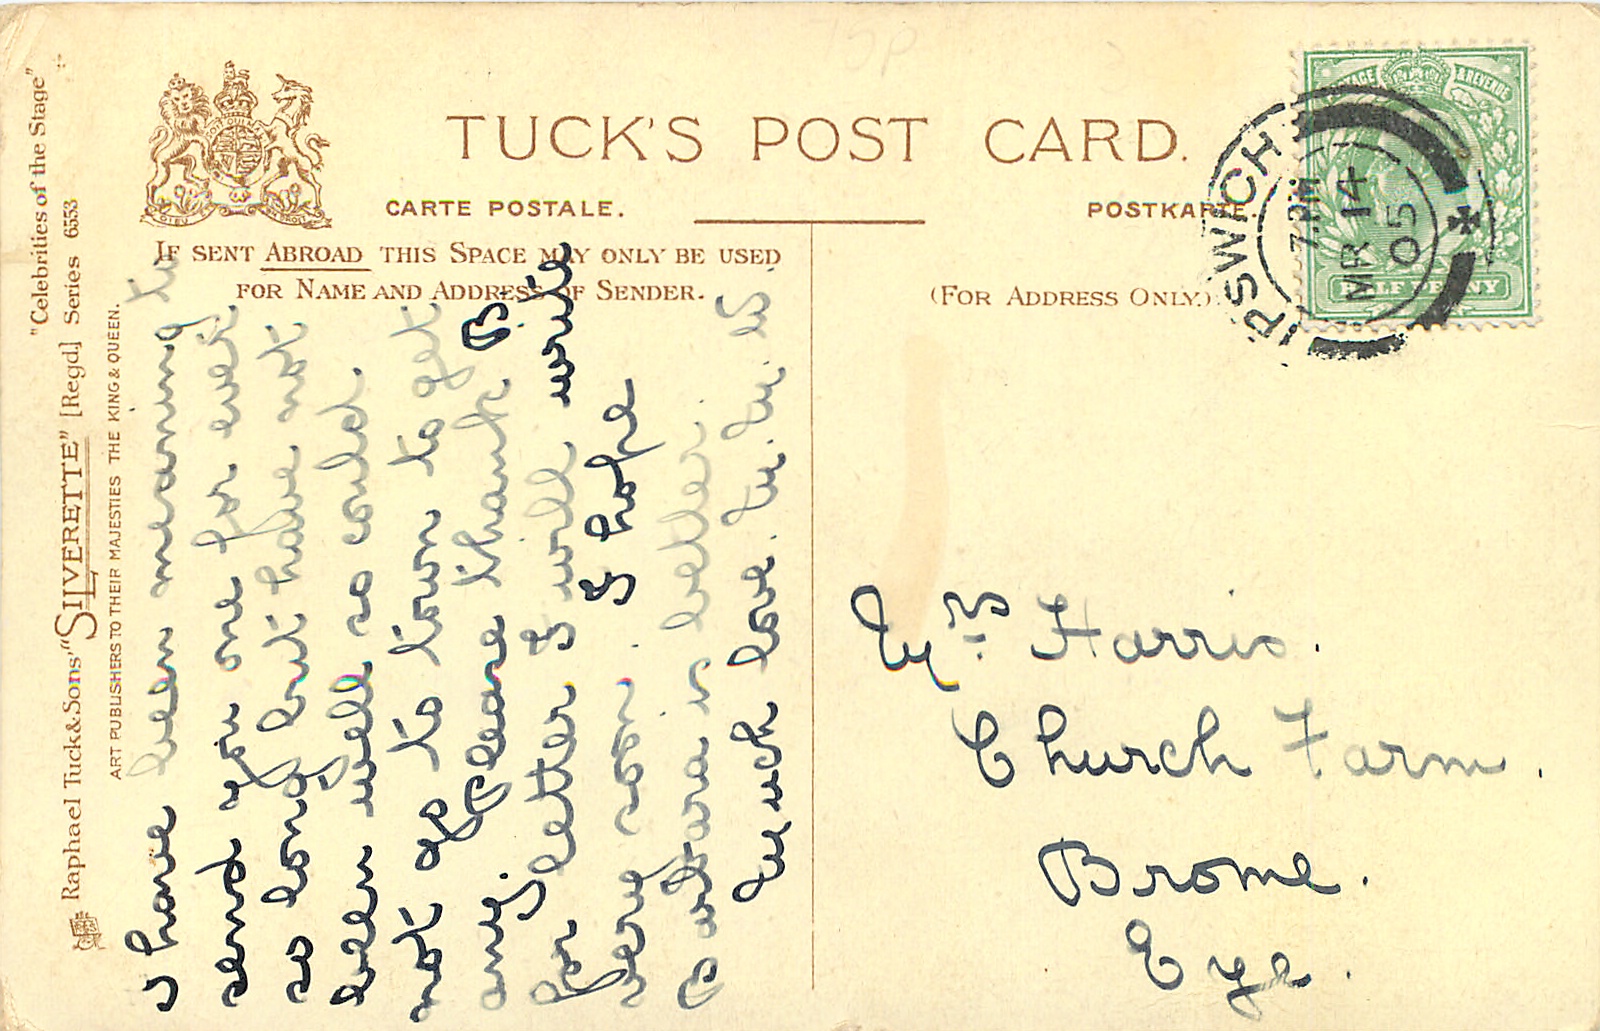 "Celebrities of the Stage"
Raphael Tuck & Sons' "SILVERETTE" [Regd.] Series 6553
ART PUBLISHERS TO THEIR MAJESTIES THE KING & QUEEN.
TUCK'S POST CARD.
CARTE POSTALE.
POSTKARTE.
IF SENT ABROAD THIS SPACE MAY ONLY BE USED
FOR NAME AND ADDRESS OF SENDER.
(FOR ADDRESS ONLY.)
POSTAGE & REVENUE
HALF PENNY
IPSWICH
7. PM
MR 14
05
I have been meaning to
send you one for ever
so long but have not
been well so could
not go to town to get
any. please thank B.
for letter I will write
very soon. I hope
Barbara is better.
Much love. M. M. W.
Mrs. Harris.
Church Farm.
Brome.
Eye.